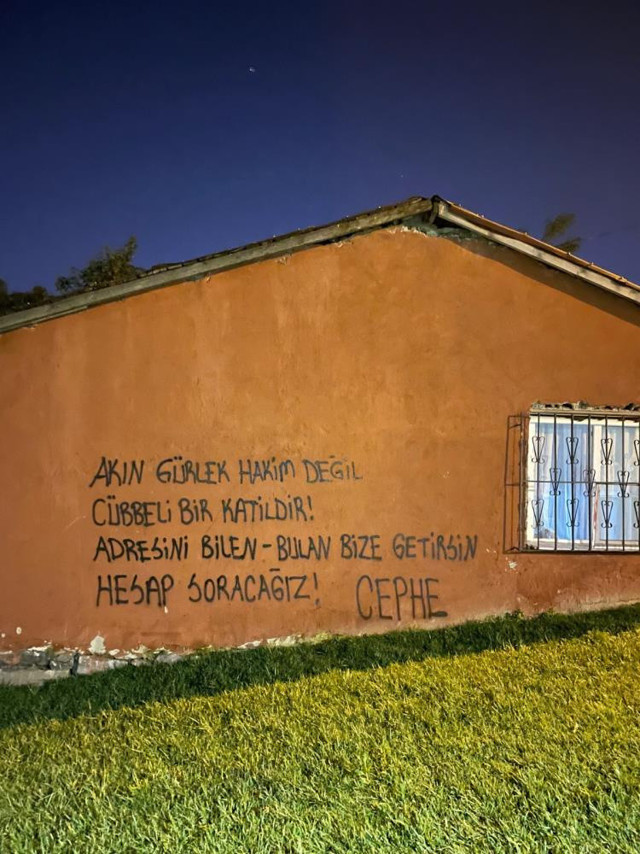 AKIN GÜRLEK HAKİM DEĞİL
CÜBBELİ BİR KATİLDİR!
ADRESİNİ BİLEN-BULAN BİZE GETİRSİN
HESAP SORACAĞIZ! CEPHE